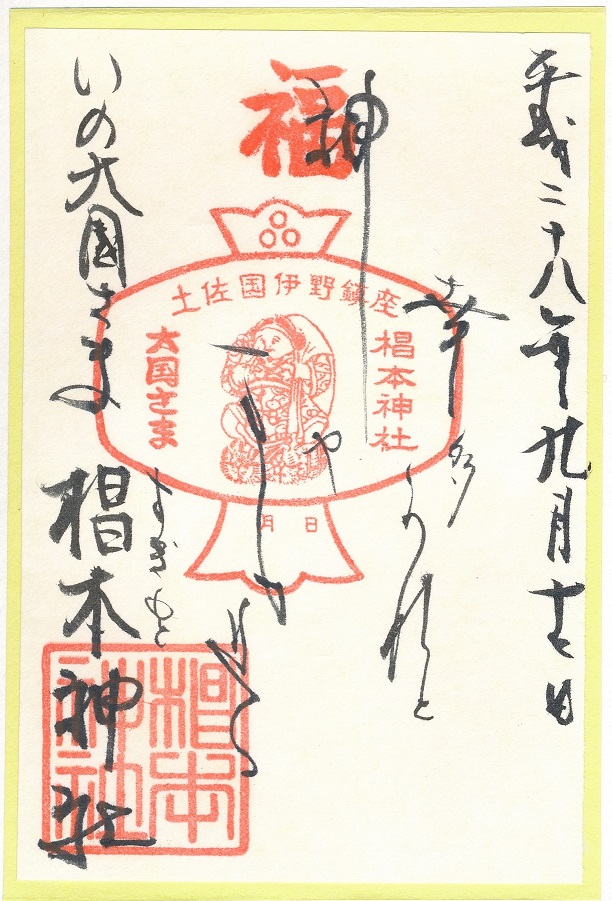 平成二十八年九月十七日
福
神
幸
多
かれと
や
すぎもと
いの大国さま 椙本神社
土佐国伊野鎮座
椙本神社
大国さま
月 日
椙本神社